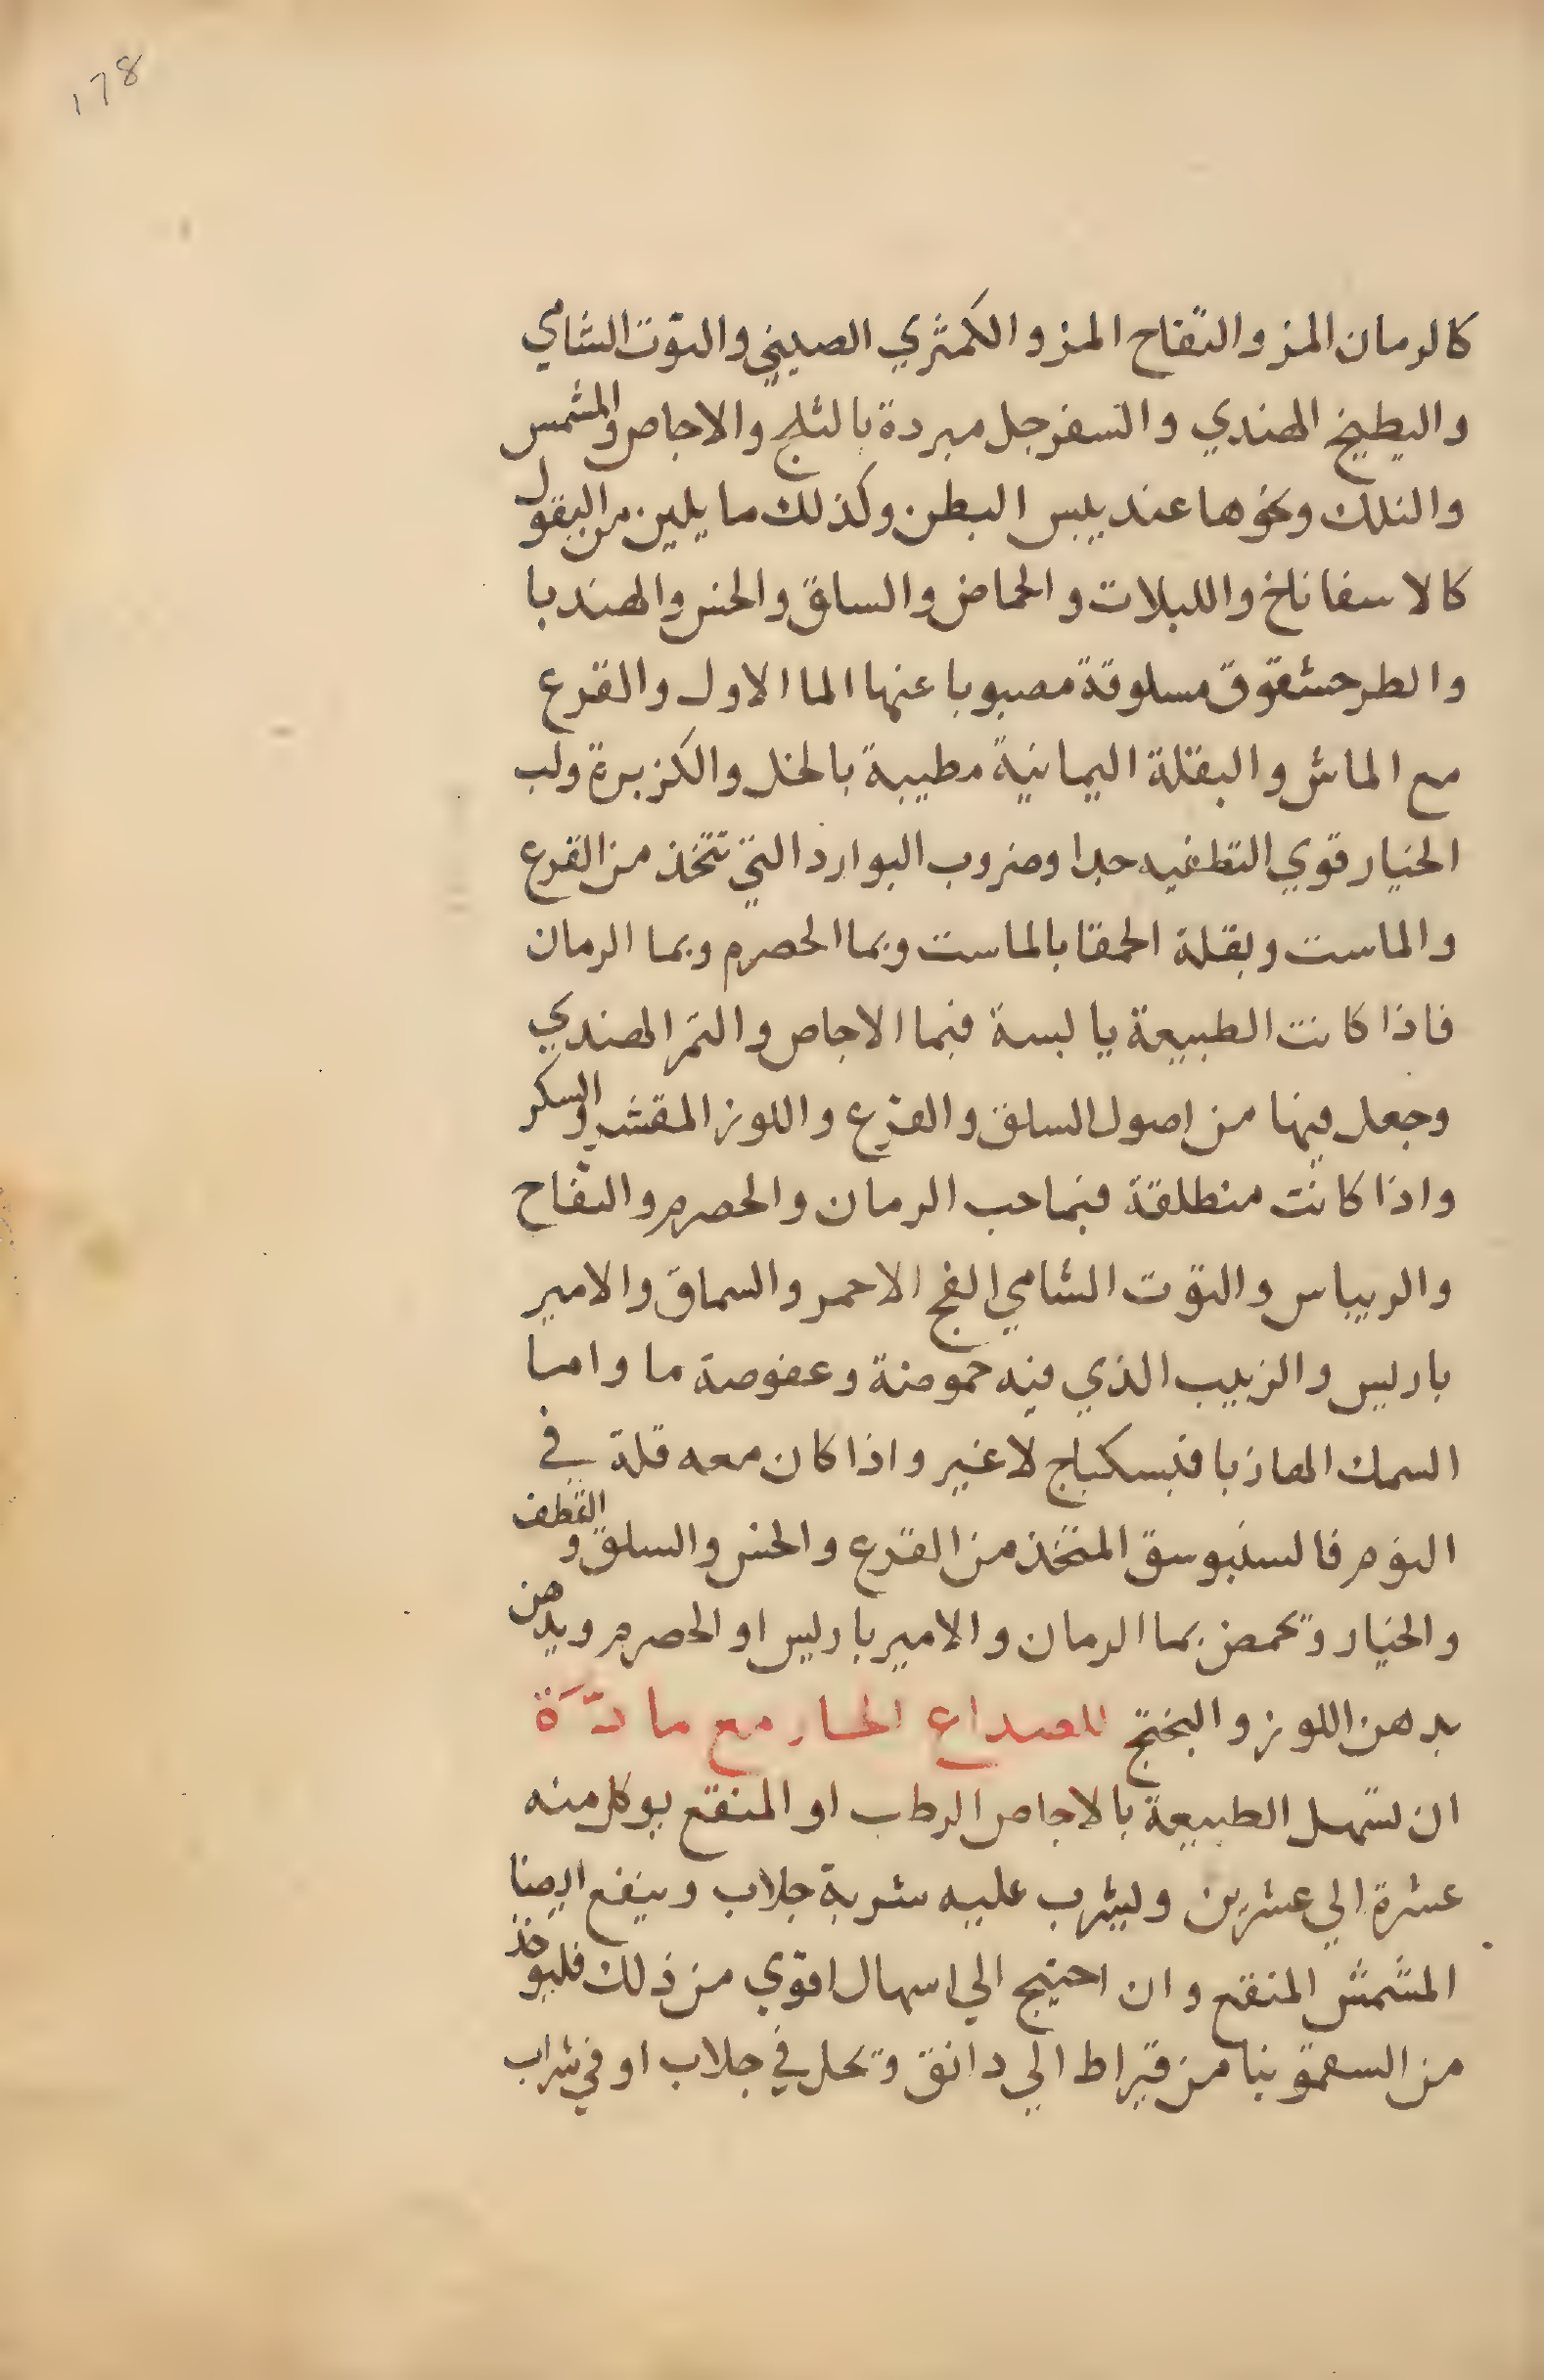 178
كالرمان المز والتفاح المز والكمثري الصيني والتوت الشامي
والبطيخ الهندي والسفرجل مبردة بالثلج والاجاص والمشمس
والنلك ونحوها عند يبس البطن وكذلك ما يلين من البقول
كالاسفاناخ واللبلاب والحماض والساق والخس والهندبا
والطرحشقوق مسلوقة مصبوبا عنها الما الاول والقرع
مع الماش والبقلة اليمانية مطيبة بالخل والكزبرة ولب
الخيار قوي التطفيه جدا وضروب البوارد التي تتخذ من القرع
والماست وبقلة الحمقا بالماست وبما الحصرم وبما الرمان
فاذا كانت الطبيعة يابسة فبما الاجاص والتمر الهندي
وجعل فيها من اصول السلق والقرع واللوز المقشر والسكر
واذا كانت منطلقة فبما حب الرمان والحصرم والتفاح
والريباس والتوت الشامي الفج الاحمر والسماق والامير
باريس والزبيب الذي فيه حموضة وعفوصة ما واما
السمك الهازبا فبسكباج لا غير واذا كان معه قلة في
النوم فالسنبوسق المتخذ من القرع والخس والسلق والقطف
والخيار وتحمض بما الرمان والاميرباريس او الحصرم ويدهن
بدهن اللوز والبختج للصداع الحار مع مادَّة
ان تسهل الطبيعة بالاجاص الرطب او المنقع يوكل منه
عشرة الي عشرين وليشرب عليه شربة جلاب وينفع ايضا
المشمش المنقع وان احتيج الي اسهال اقوي من ذلك فليوخذ
من السقمونيا من قيراط الي دانق وتحل في جلاب او في شراب